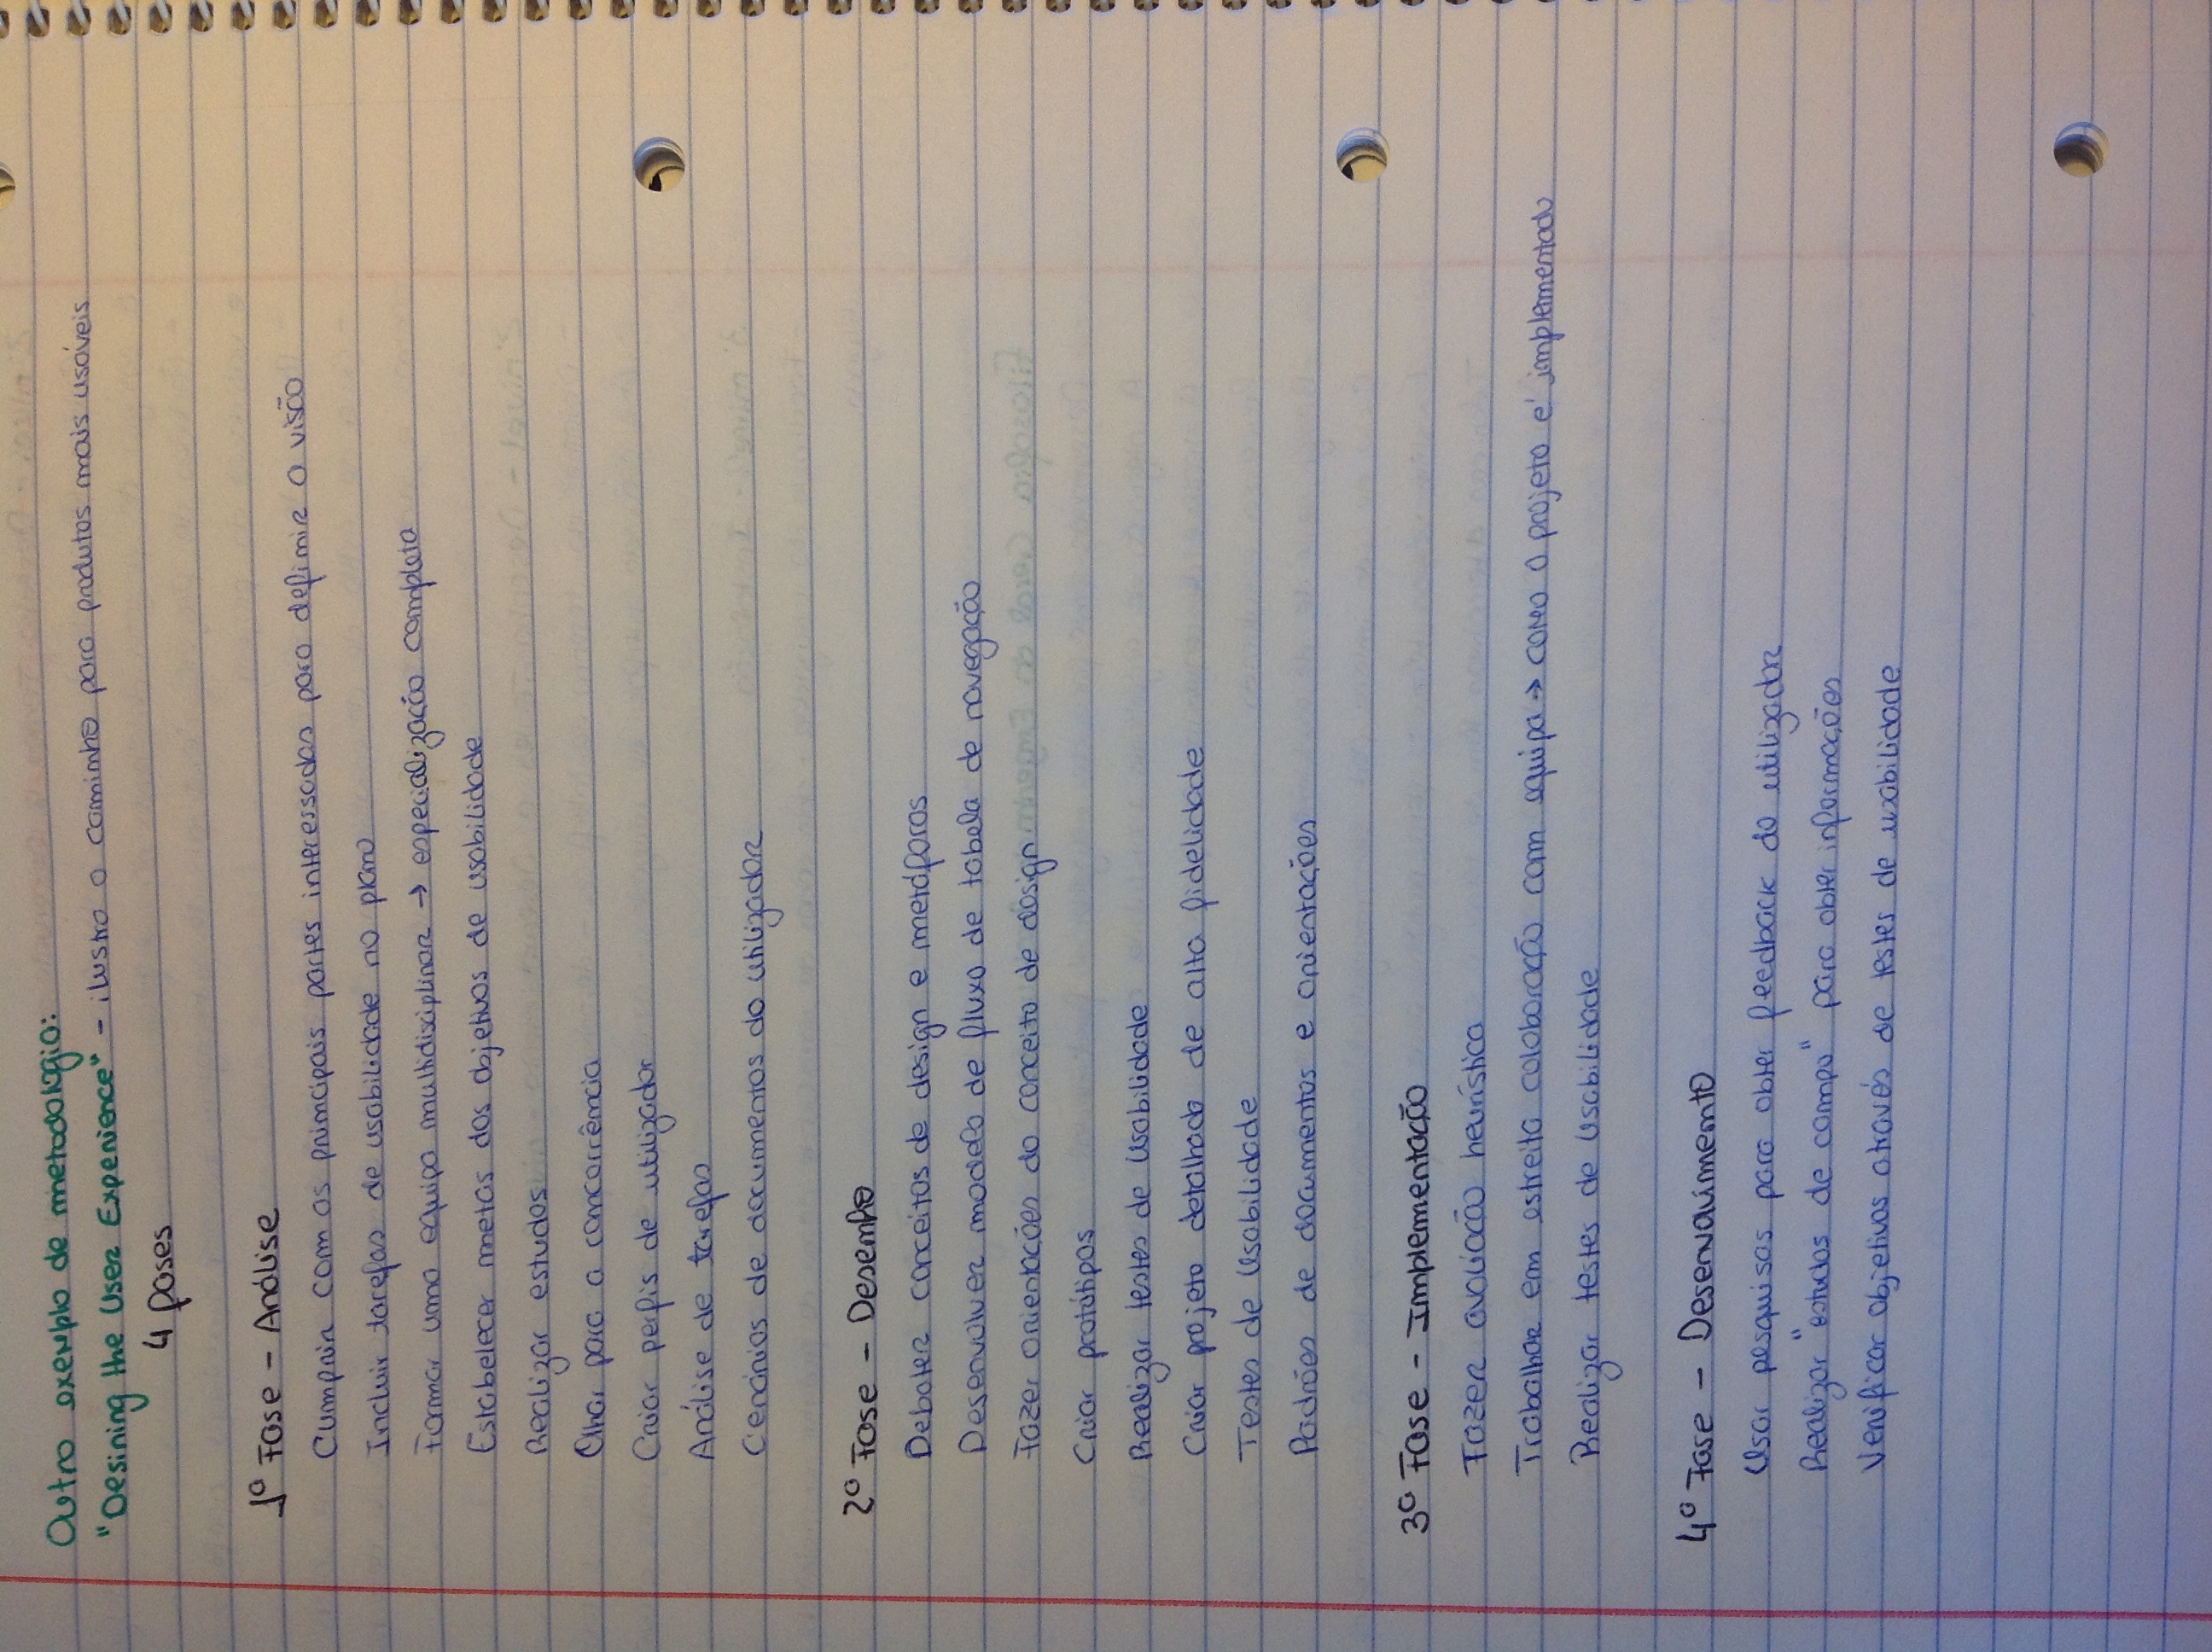 Outro exemplo de metodologia:
"Desining the User Experience" - ilustra o caminho para produtos mais usáveis
4 fases
1ª Fase - Análise
Cumprir com as principais partes interessadas para definir a visão
Incluir tarefas de usabilidade no plano
Formar uma equipa multidisciplinar → especialização completa
Estabelecer metas dos objetivos de usabilidade
Realizar estudos
Olhar para a concorrência
Criar perfis de utilizador
Análise de tarefas
Cenários de documentos do utilizador
2ª Fase - Desenho
Debater conceitos de design e metáforas
Desenvolver modelo de fluxo de tabela de navegação
Fazer orientações do conceito de design
Criar protótipos
Realizar testes de Usabilidade
Criar projeto detalhado de alta fidelidade
Testes de Usabilidade
Padrões de documentos e orientações
3ª Fase - Implementação
Fazer avaliação heurística
Trabalhar em estreita colaboração com equipa → como o projeto é implementado
Realizar testes de Usabilidade
4ª Fase - Desenvolvimento
Usar pesquisas para obter feedback do utilizador
Realizar "estudos de campo" para obter informações
Verificar objetivos através de testes de usabilidade